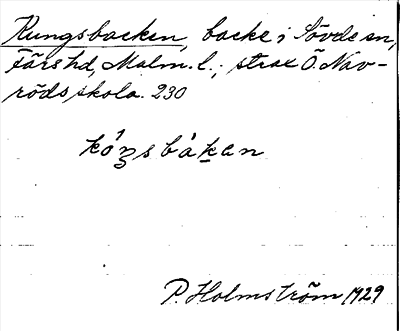 Kungsbacken, backe i Sövde sn,
Färs hd, Malm. l.; strax Ö. Nav-
röds skola. 230
kóŋsbàkan
P. Holmström 1929